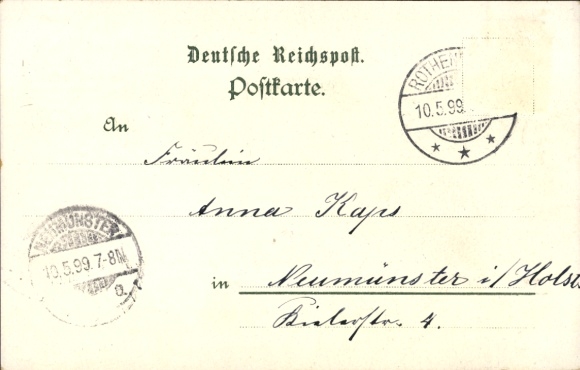 Deutsche Reichspost.
Postkarte.
ROTHE
10.5.99.
An
Fräulein
Anna Kaps
NEUMÜNSTER
10.5.99.7-8N
in Neumünster i/Holst
Kielerstr. 4.